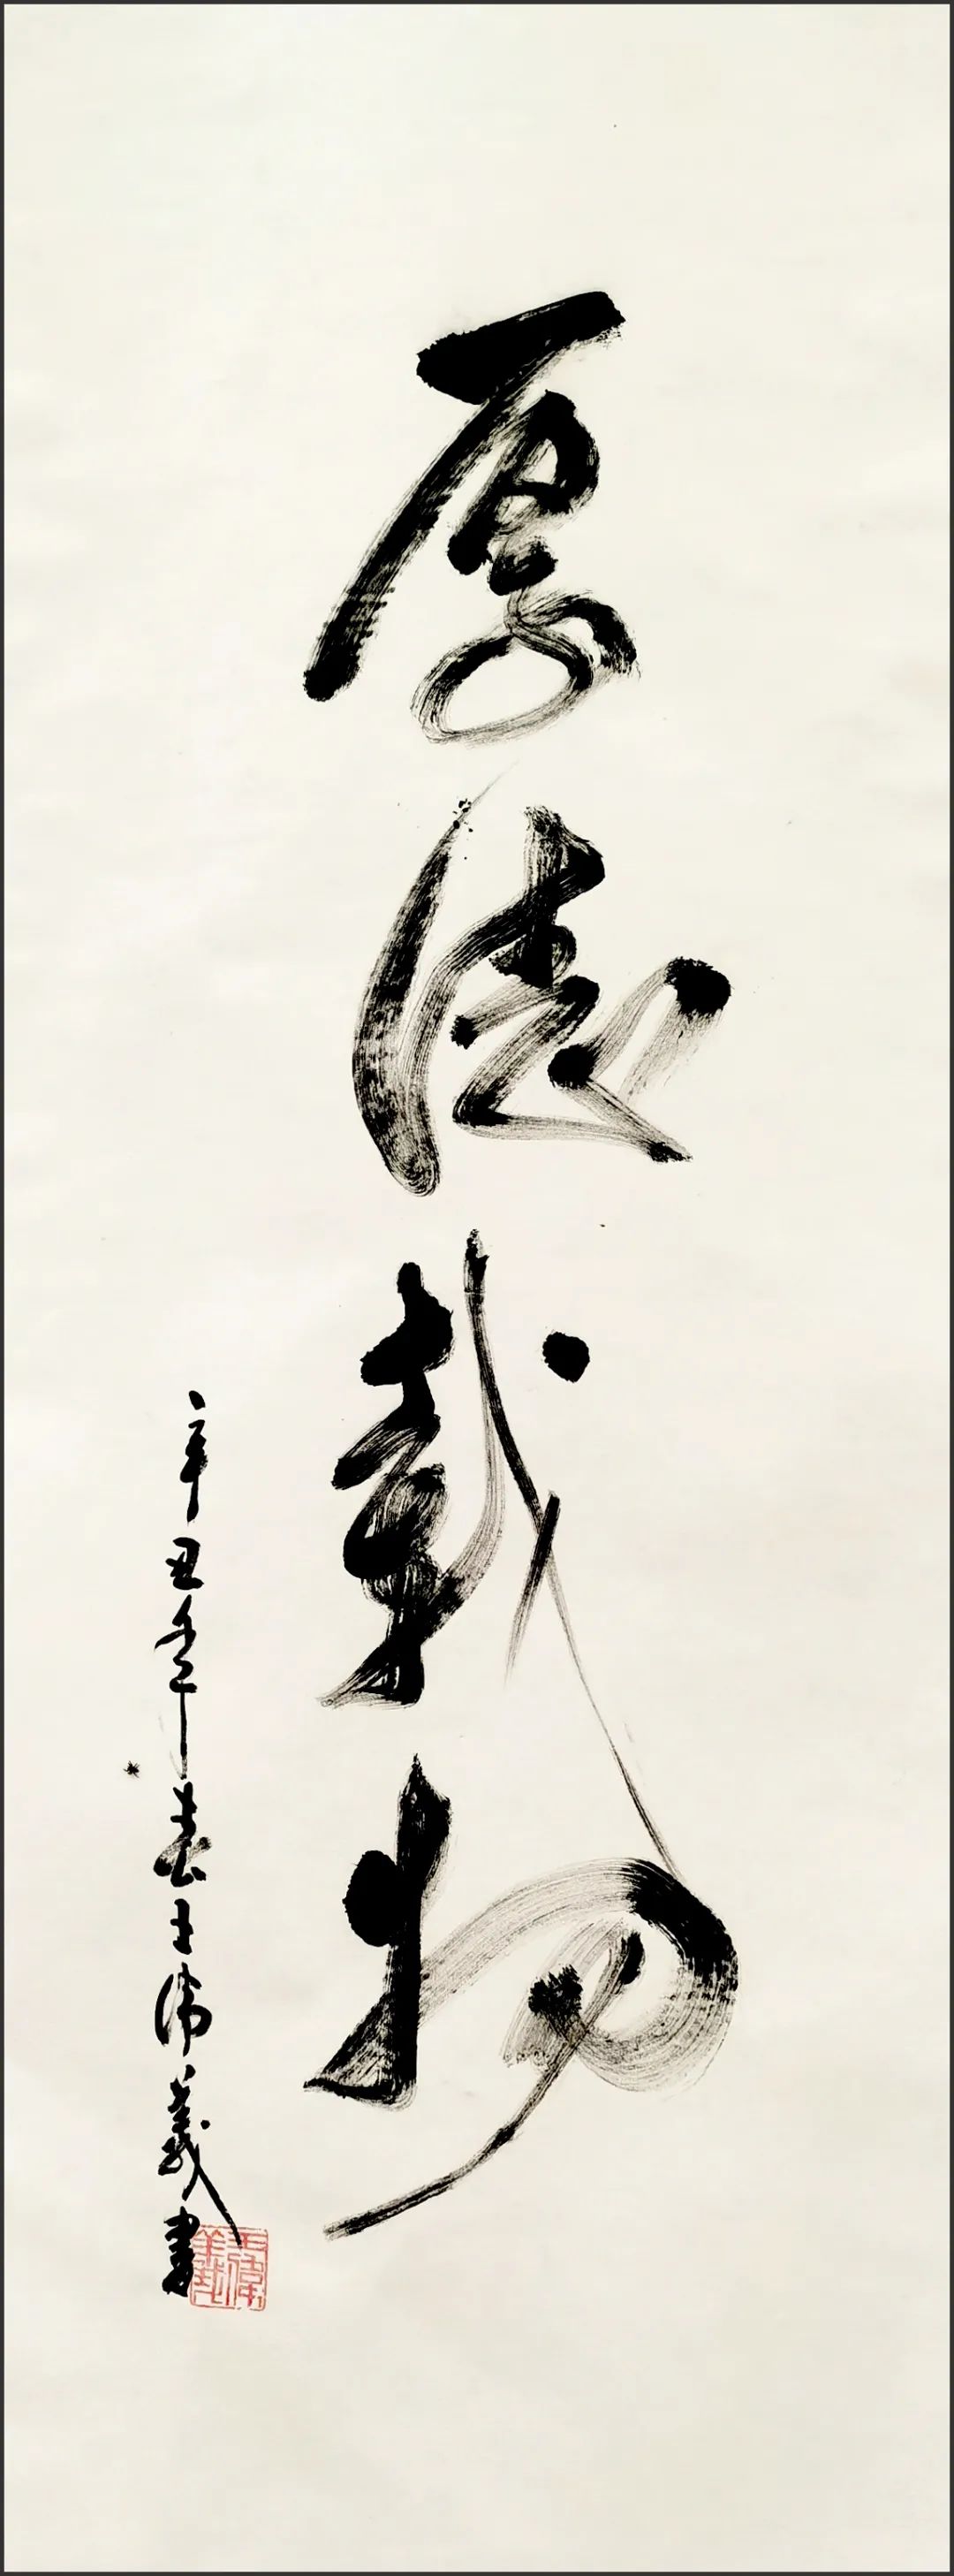 厚德載物
辛丑年春王偉義書
王偉義